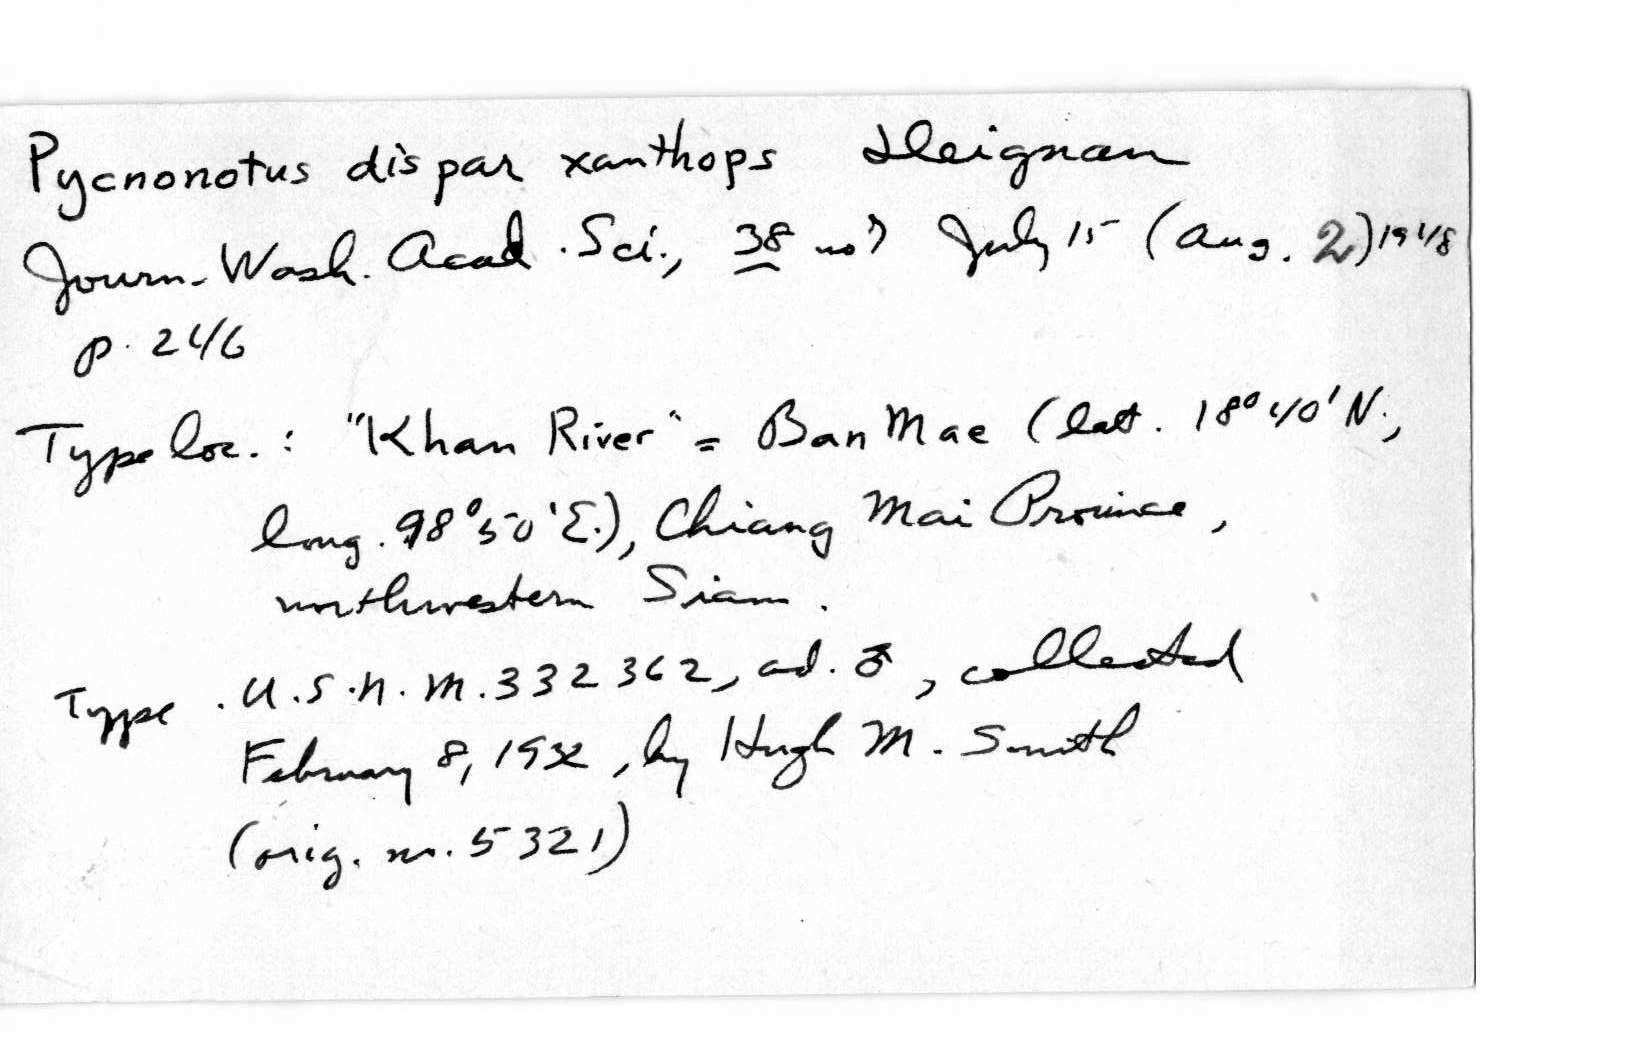 Pycnonotus dispar xanthops Deignan
Journ. Wash. Acad. Sci., 38 no 7 July 15 (Aug. 2) 1948
p. 246
Type loc.: "Khan River" = Ban Mae (lat. 18°40'N.,
long. 98°50'E.), Chiang Mai Province,
northwestern Siam.
Type . U.S.N.M. 332362, ad. ♂, collected
February 8, 1932, by Hugh M. Smith
(orig. no. 5321)